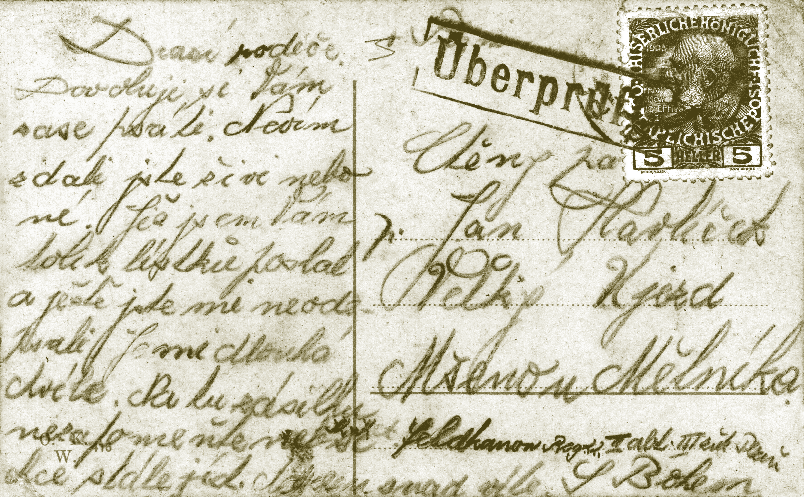 Drasí rodiče.
Dovoluji si Vám
sase psáti. Nevím
zdali jste živi nebo
né. Již jsem Vám
tolik lístků poslal
a ještě jste mi neodé-
psali. Je mi dlouhá
chvíle. Na tu zásilku
nezapomeňte neb se
chce stále jíd. snad vdle. S Bohem
Überprüft
KAISERLICHE KÖNIGLICHE
ÖSTERREICHISCHE POST
1908
5 HELLER 5
Ctěný pan
p. Jan Havlíček
Velký Ujezd
Mšeno u Mělníka.
Feldkanon Regt. II abt.
W